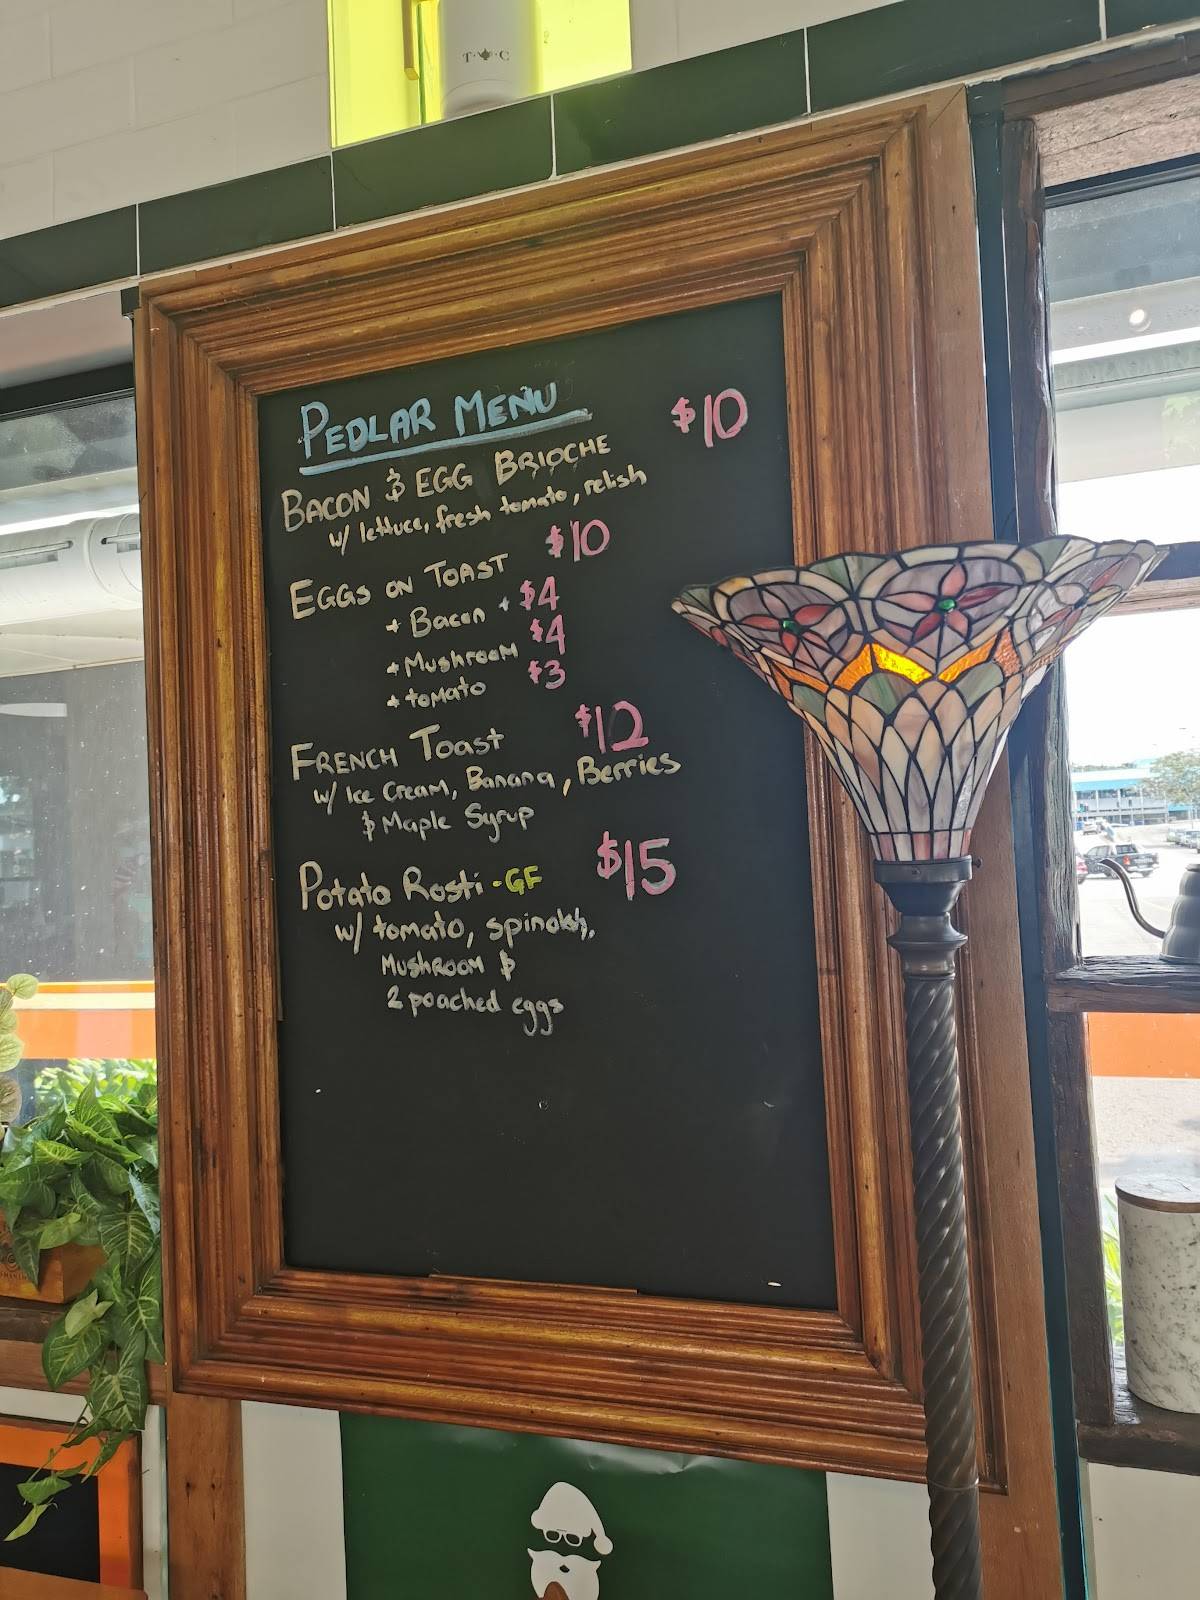 T C
PEDLAR MENU
BACON & EGG BRIOCHE $10
w/ lettuce, fresh tomato, relish
EGGS ON TOAST $10
+ Bacon + $4
+ MushrooM $4
+ tomato $3
FRENCH Toast $12
w/ Ice Cream, Banana, Berries
& Maple Syrup
Potato Rosti - GF $15
w/ tomato, spinach,
MUSHROOM &
2 poached eggs